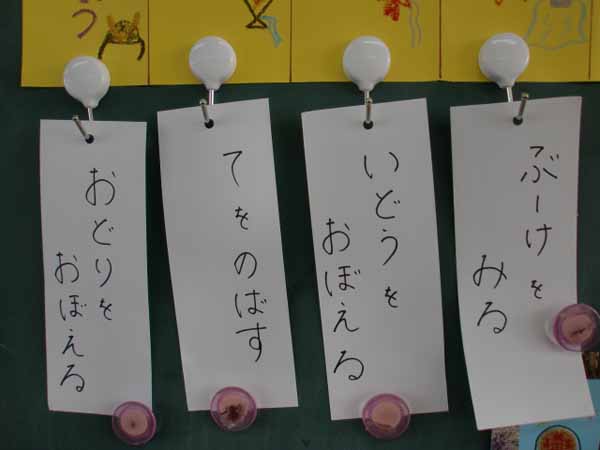 ぶーけを
みる
いどうを
おぼえる
てをのばす
おどりを
おぼえる